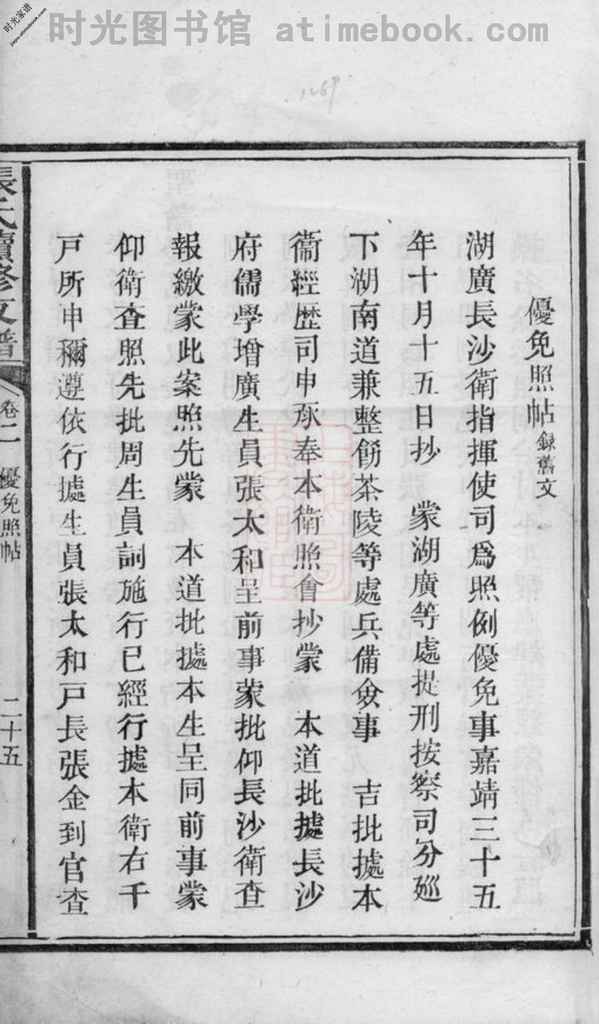 时光图书馆 atimebook.com
时光家谱
1269
優免照帖 録舊文
湖廣長沙衛指揮使司爲照例優免事嘉靖三十五
年十月十五日抄 蒙湖廣等處提刑按察司分廵
下湖南道兼整飭茶陵等處兵備僉事 吉批據本
衞經歷司申承奉本衛照會抄蒙 本道批據長沙
府儒學增廣生員張太和呈前事蒙批仰長沙衛查
報繳蒙此案照先蒙 本道批據本生呈同前事蒙
仰衛查照先批周生員訓施行已經行據本衛右千
戸所申稱遵依行據生員張太和戸長張金到官查
張氏續修支譜 卷二 優免照帖 二十五